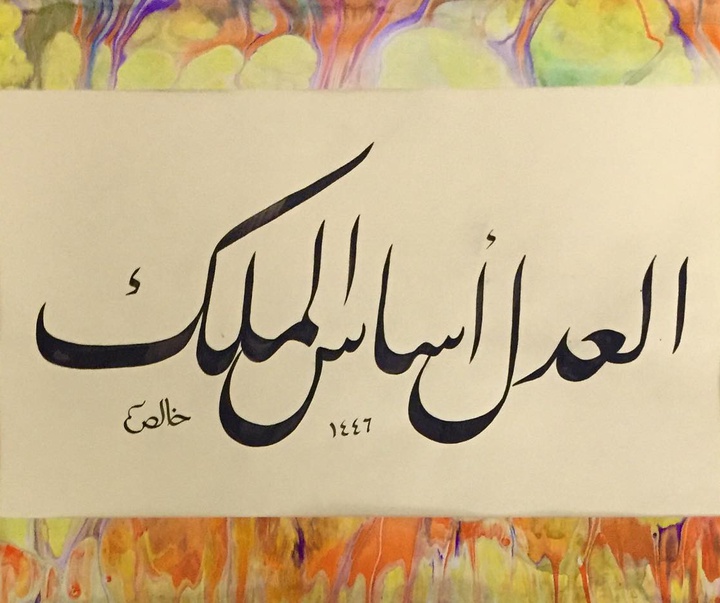 العدل أساس الملك
١٤٤٦
خالص